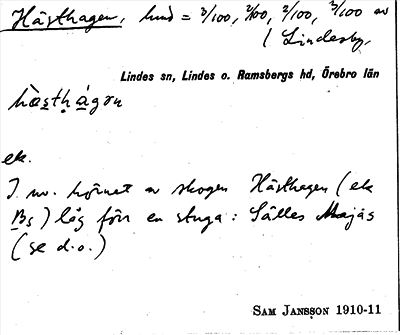 Hästhagen, hmd = 3/100, 2/100, 2/100, 3/100 av
( Lindesby,
Lindes sn, Lindes o. Ramsbergs hd, Örebro län
hàsthágɔn
ek.
I nv. hörnet av skogen Hästhagen (ek
Bs) låg förr en stuga: Sälles Majäs
(se d.o.)
SAM JANSSON 1910-11